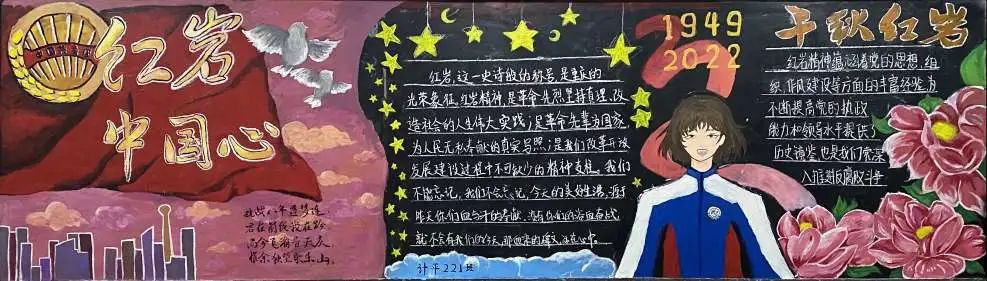 红岩
中国心
红岩,这一史诗般的称号,是重庆的
光荣象征,红岩精神,是革命先烈坚持真理、改
造社会的人生伟大实践;是革命先辈为国家
为人民无私奉献的真实写照;是我们改革开放
发展建设过程中不可缺少的精神支柱。我们
不能忘记,我们不会忘记,今天的美好生活,源于
昨天你们血与汗的奉献,没有你们的浴血奋战
就不会有我们的今天,那血染的
计平221班
1949
2022
千秋红岩
红岩精神蕴涵着党的思想、组
织、作风建设等方面的丰富经验,为
不断提高党的执政
能力和领导水平提供了
历史镜鉴,也是我们党深
入推进反腐败斗争